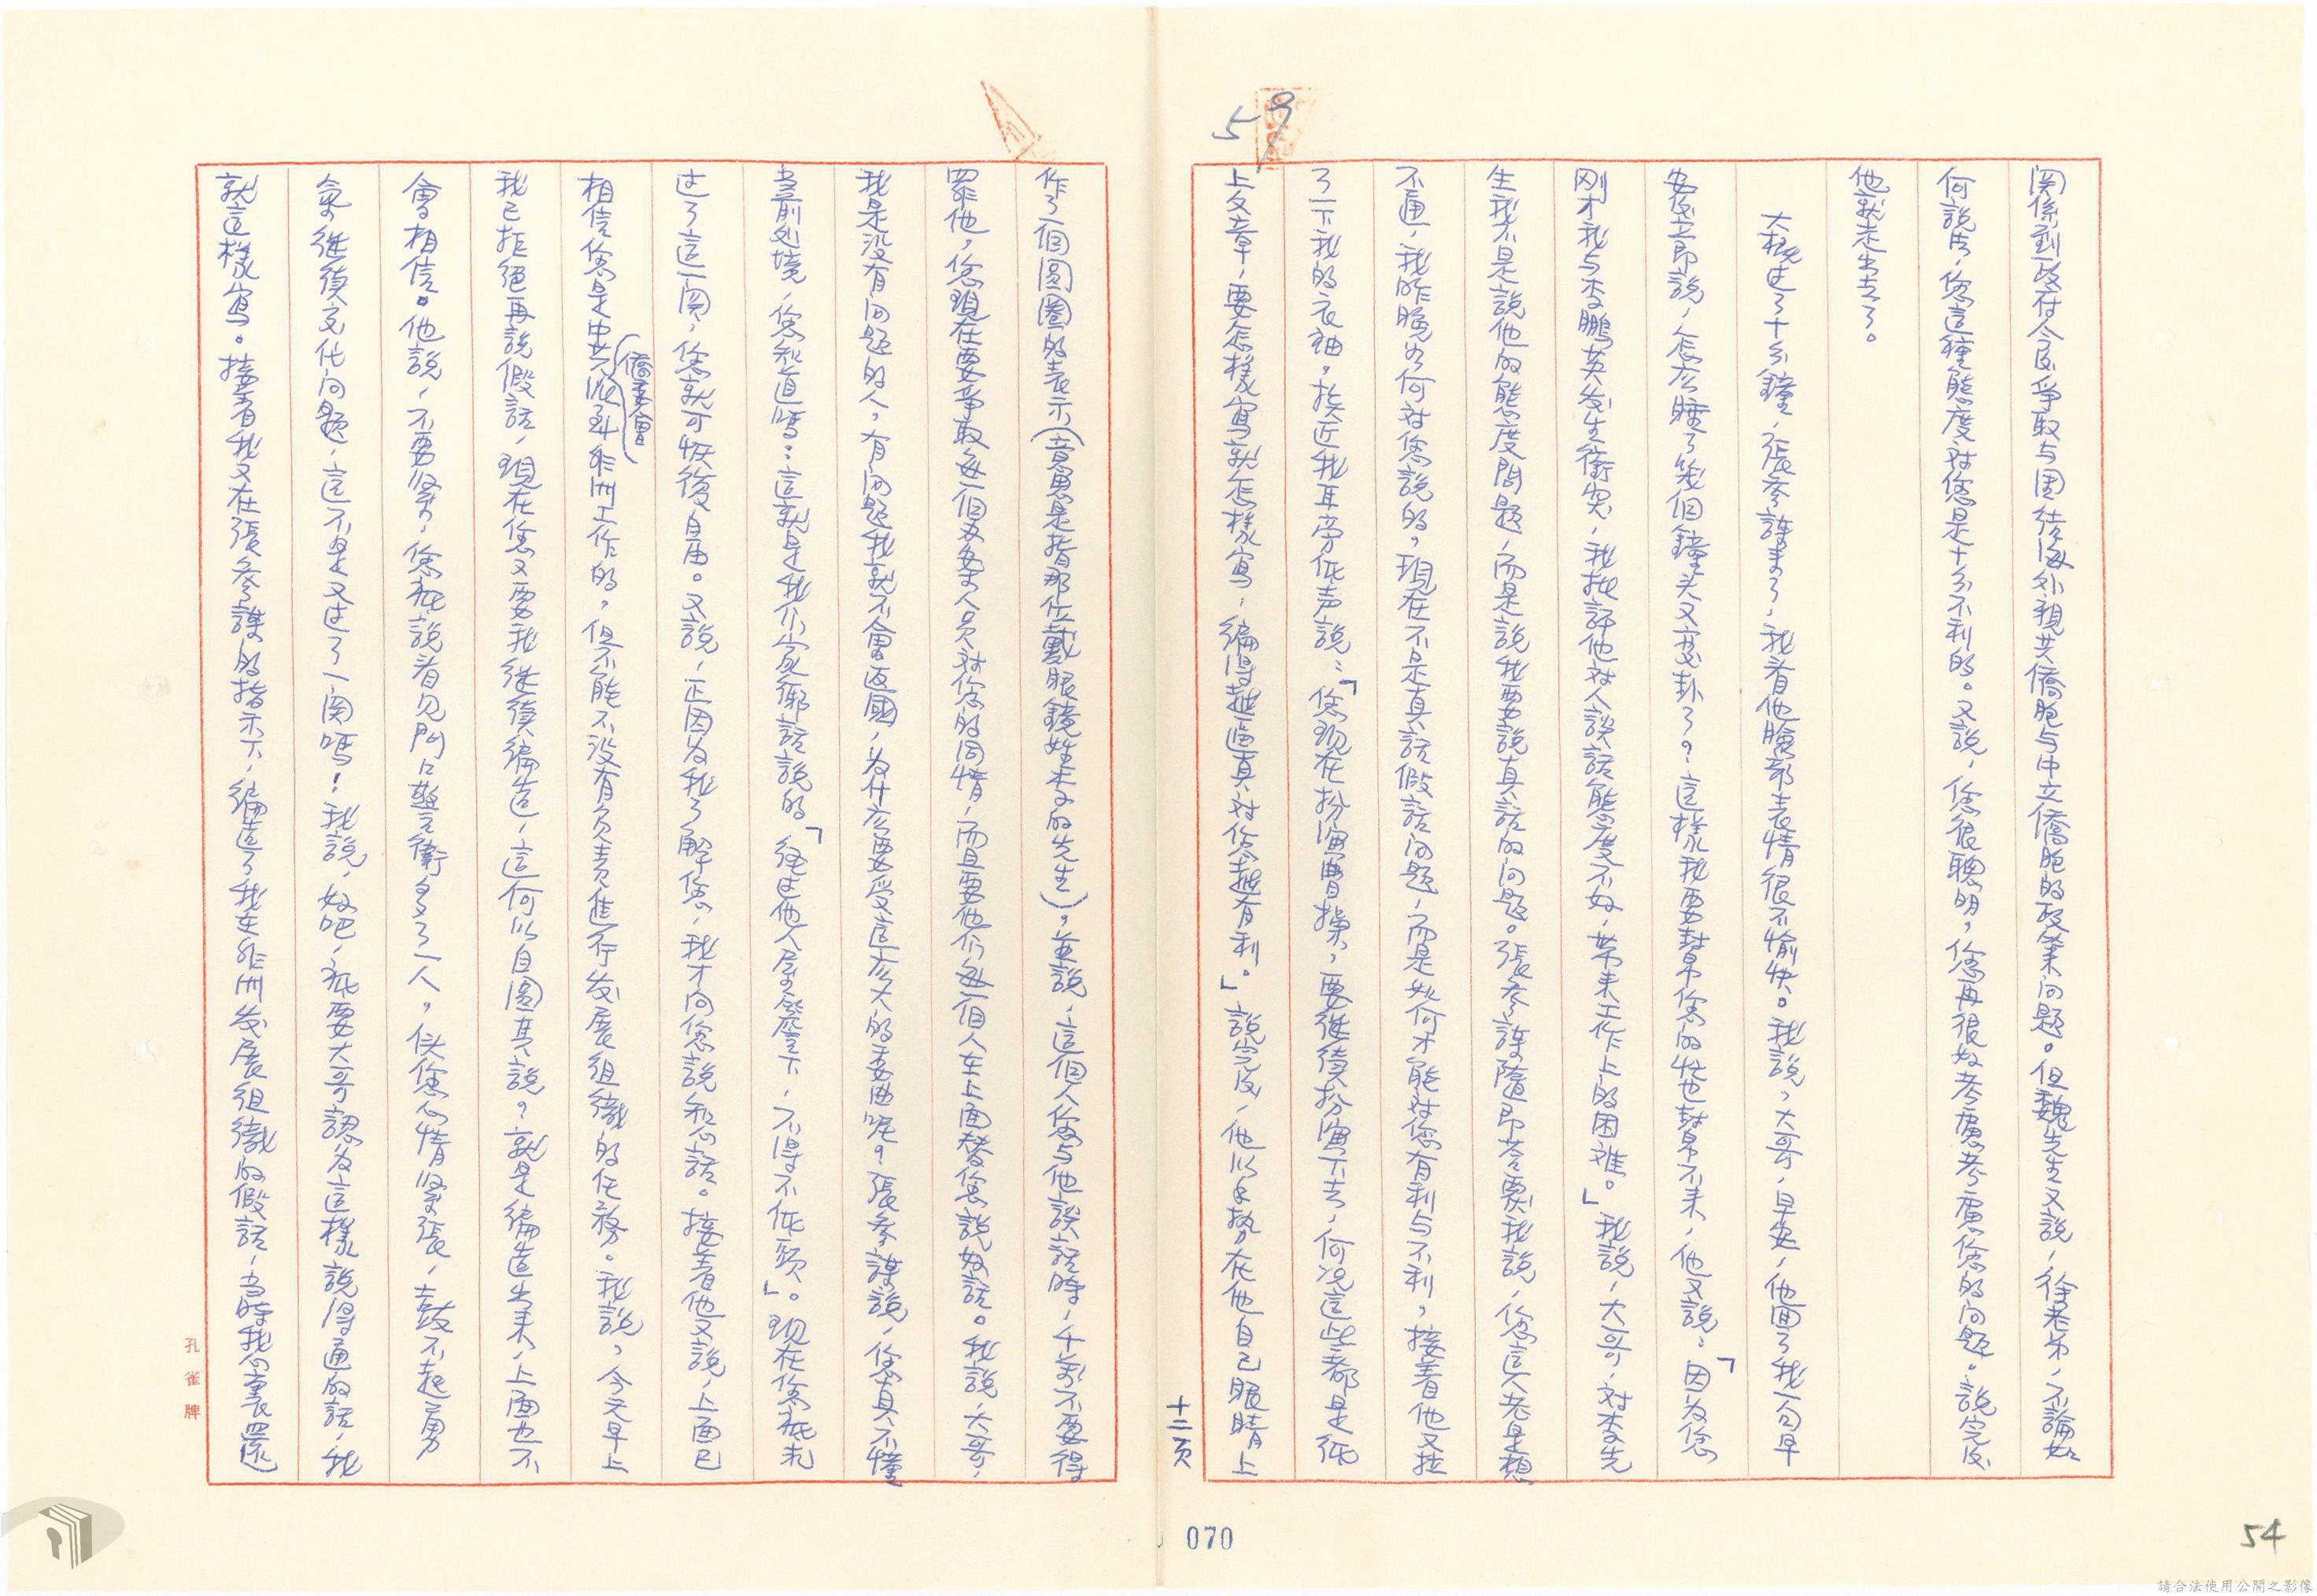 関係到政府今后爭取与团结海外親共僑胞与中立僑胞的政策问題。但魏先生又説，徐老弟，不論如
何說法，您這種態度对您是十分不利的。又説，您很聰明，您再很好考慮考慮您的问題。說完後
他就走出去了。
大概过了十分鐘，張參謀来了，我看他臉部表情很不愉快。我説，大哥，早安，他回了我一句早
安後立即説，怎么睡了幾個鐘头又变卦了？這樣我要幫帮您的忙也幫帮不来，他又説：「因为您
刚才我与李鵬英发生衝突，我批評他对人談話態度不好，帶来工作上的困难。」我説，大哥，对李先
生我不是説他的態度問題，而是説我要說真話的问題。張參謀隨即答覆我説，您這人老是想
不通，我昨晚如何对您説的，現在不是真話假話问題，而是如何才能对您有利与不利，接着他又拉
了一下我的衣袖，挨近我耳旁低声説：「您现在扮演曹操，要继續扮演下去，何况這些都是纸
上文章，要怎樣寫就怎樣寫，編得越逼真对您越有利。」説完後，他以手勢在他自己眼睛上
作了一個圓圈的表示（意思是指那位戴眼鏡姓李的先生），並説，這個人您与他談話時，千萬不要得
罪他，您現在要爭取每一個办案人员对您的同情，而且要他们每一個人在上面替您説好話。我説，大哥，
我是没有问題的人，有问題我就不會返國，为什么要受這么大的委曲呢？張參謀説，您真不懂
当前处境，您知道嗎：這就是我本家鄉話説的「经过他人屋簷下，不得不低頭」。现在您祇
过了這一関，您就可恢復自由。又説，正因为我了解您，我才向您説知心話。接着他又説，上面已
相信您是中共（僑委會）派到非洲工作的，但不能不没有负责進行发展组織的任務。我説，今天早上
我已拒絕再説假話，現在您又要我继續編造，這何以自圓其説？就是編造出来，上面也不
會相信。他説，不要緊，您祇説看见門口警衛多了一人，使您心情緊張，鼓不起勇
氣继續交代问題，這不是又过了一関嗎！我説，好吧，祇要大哥認为這樣説得通的話，我
就這樣寫。接着我又在張參謀的指示下，編造了我在非洲发展组織的假話，当時我内衷還
十二页
59
070
54
孔雀牌
請合法使用公開之影像